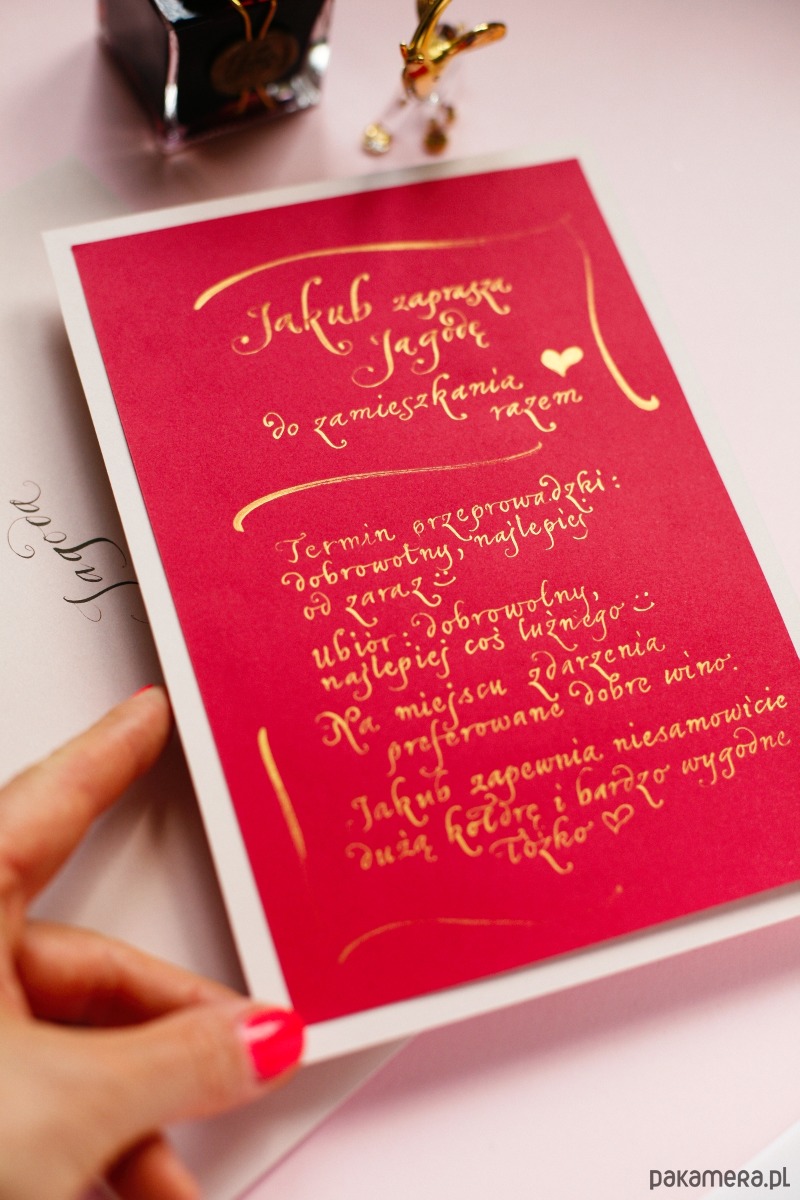 Jakub zaprasza
Jagodę
do zamieszkania
razem
Termin przeprowadzki:
dobrowolny, najlepiej
od zaraz :)
Ubiór: dobrowolny,
najlepiej coś luźnego :)
Na miejscu zdarzenia
preferowane dobre wino.
Jakub zapewnia niesamowicie
dużą kołdrę i bardzo wygodne
łóżko ♡
Jagoda
pakamera.pl